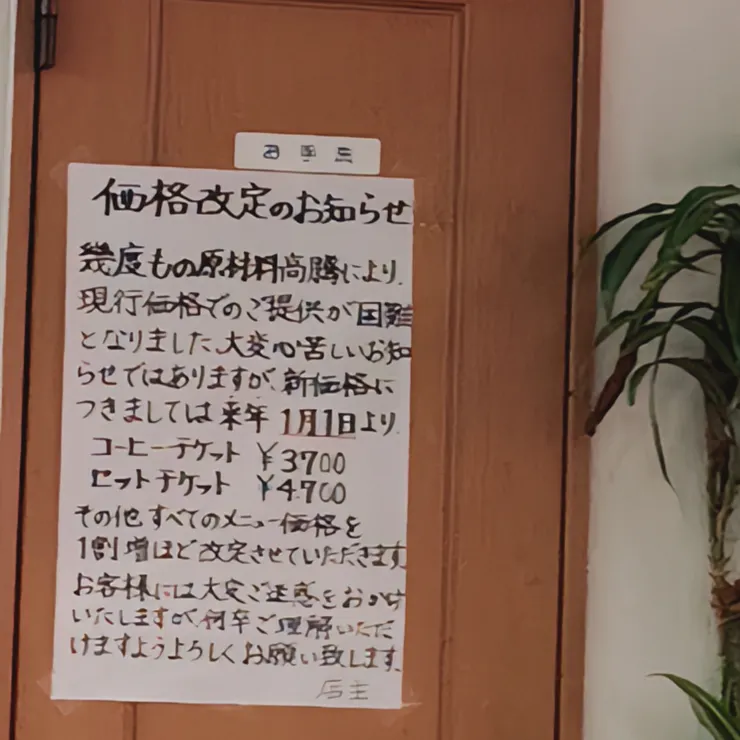 価格改定のお知らせ
幾度もの原材料高騰により、
現行価格でのご提供が困難
となりました。大変心苦しいお知
らせではありますが、新価格に
つきましては来年1月1日より、
コーヒーチケット ¥3700
セットチケット ¥4700
その他すべてのメニュー価格を
1割増ほど改定させていただきます。
お客様には大変ご迷惑をおかけ
いたしますが、何卒ご理解いただ
けますようよろしくお願い致します。
店主